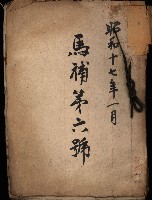 昭和十七年一月
馬補第六號